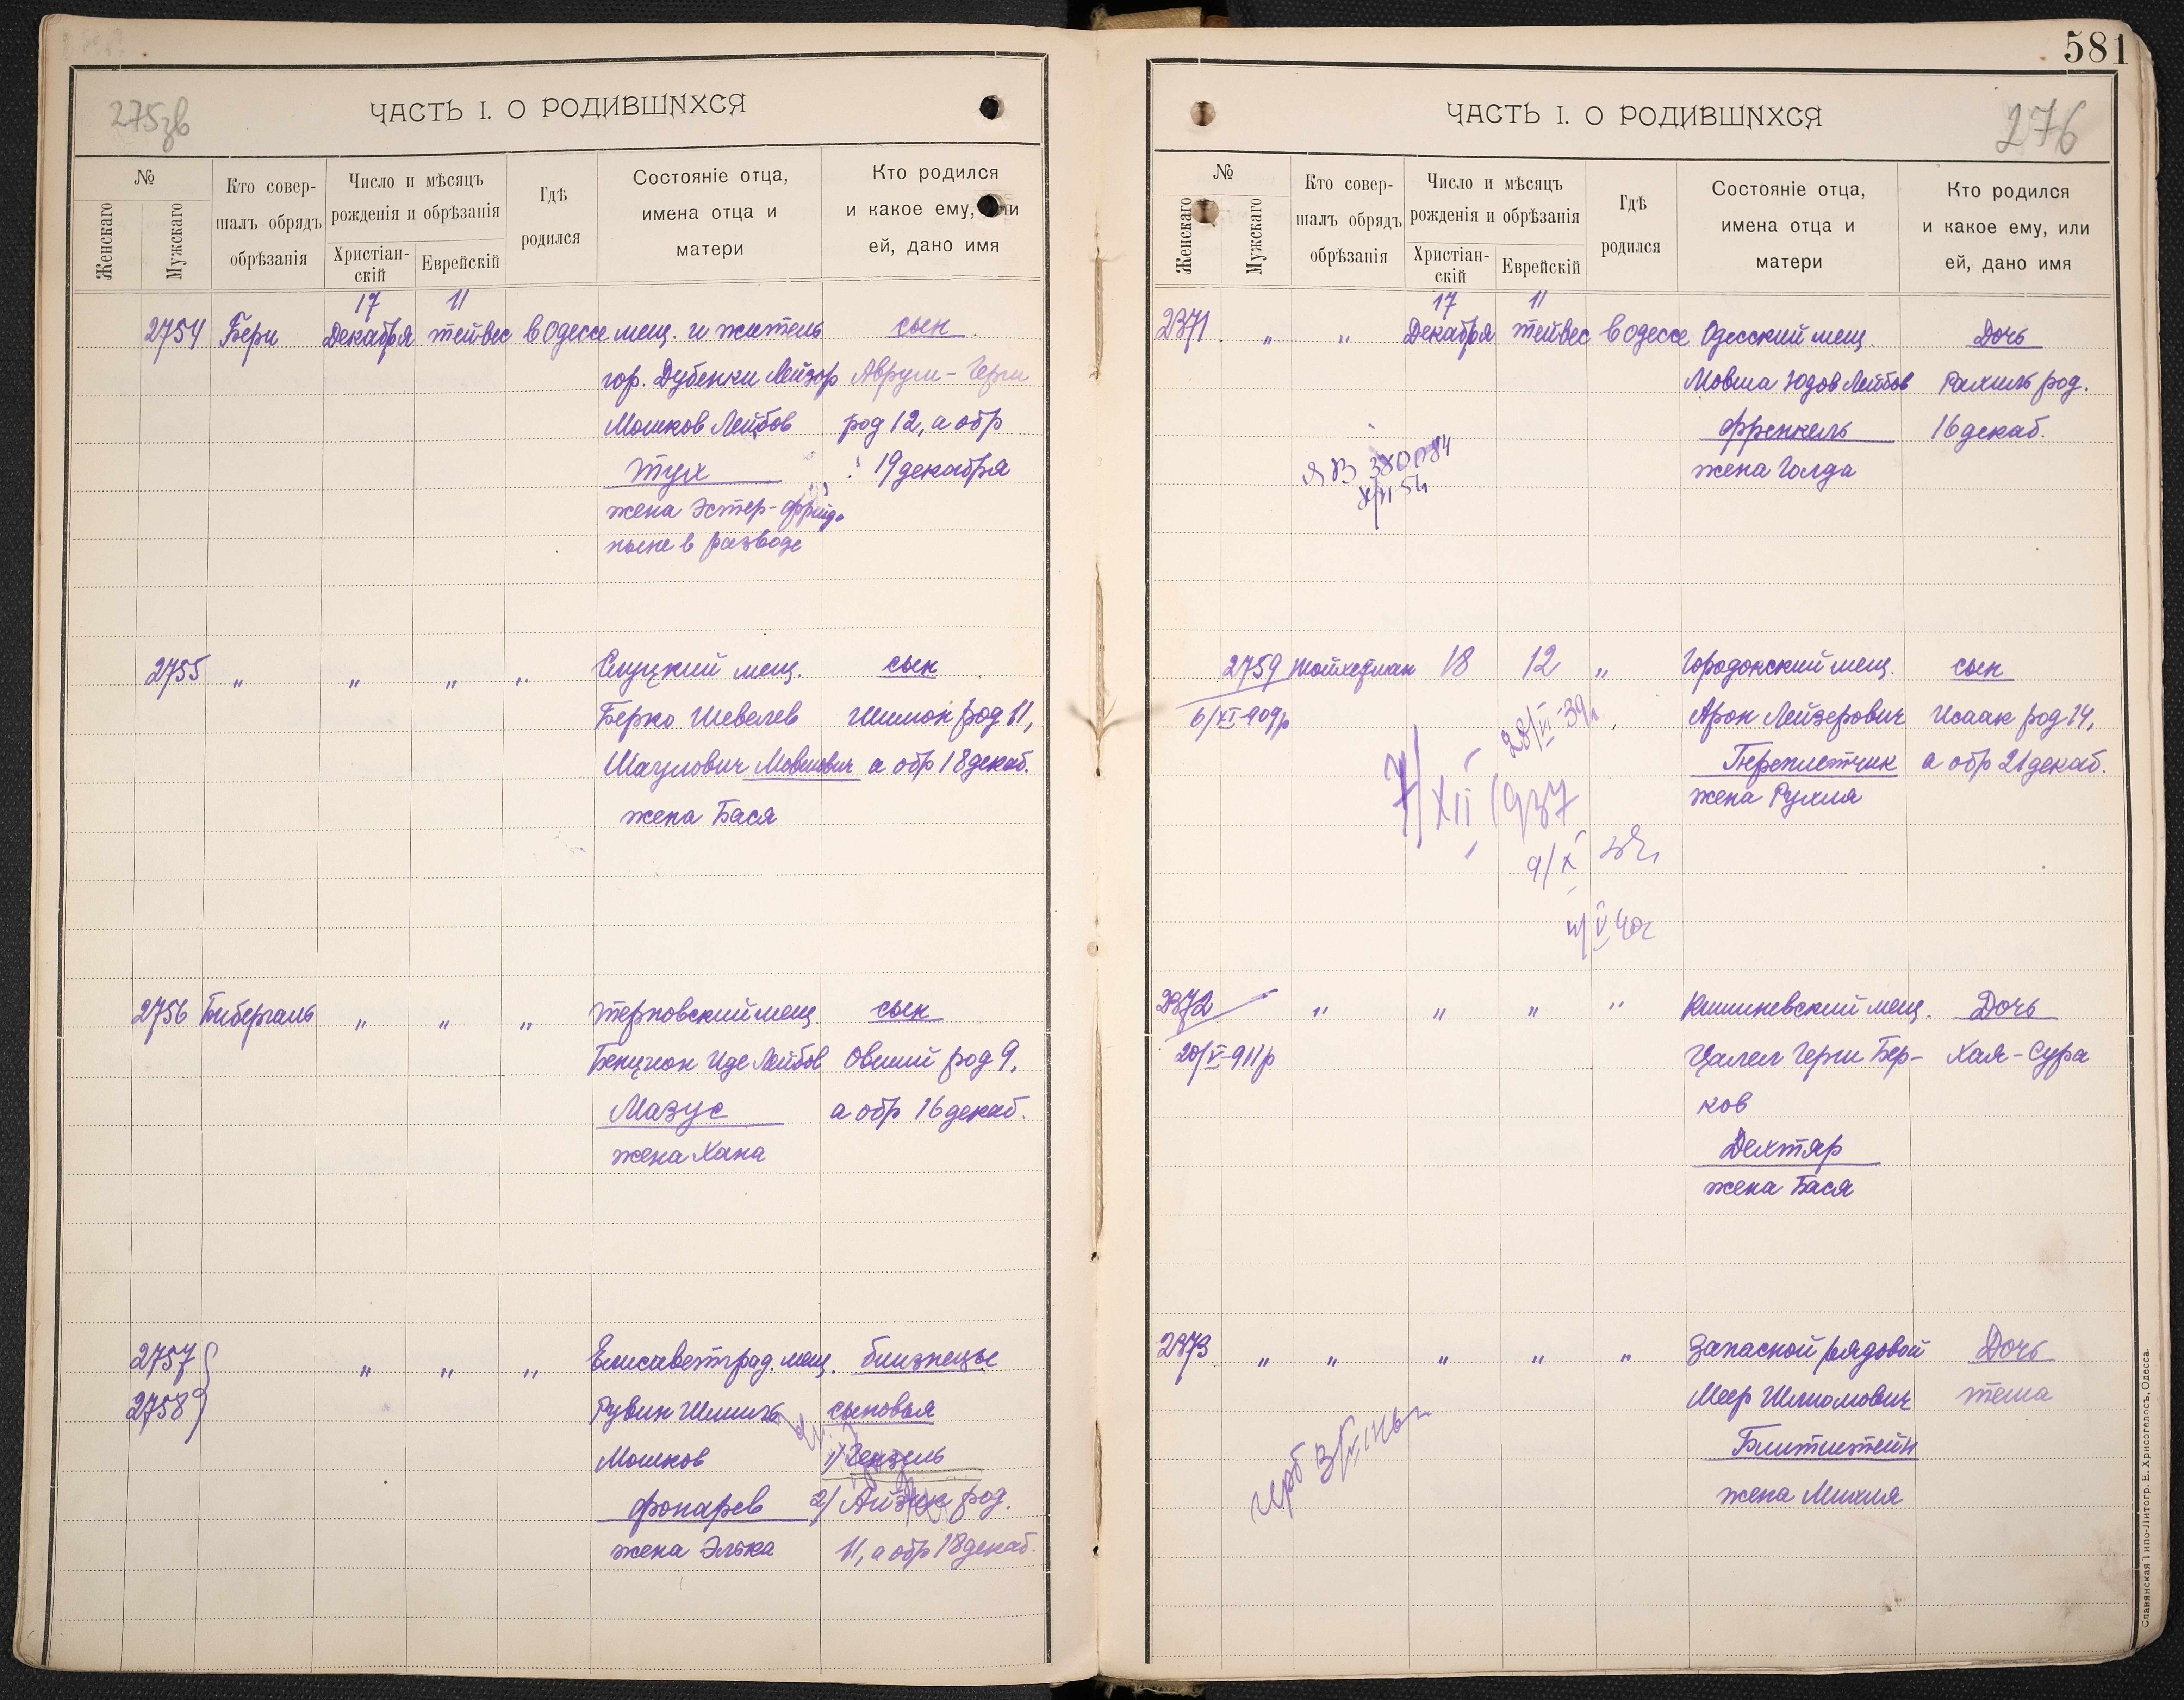 275зв
ЧАСТЬ I. О РОДИВШИХСЯ
№
Женскаго
Мужскаго
Кто совер-
шалъ обрядъ
обрѣзанія
Число и мѣсяцъ
рожденія и обрѣзанія
Христіан-
скій
Еврейскій
Гдѣ
родился
Состояніе отца,
имена отца и
матери
Кто родился
и какое ему, или
ей, дано имя
17 11
2754 Бери Декабря тейвес в Одессе мещ. и житель сын
гор. Дубенки Лейзор Аврум-Герш
Мошков Лейбов род 12, а обр
Тух 19 декабря
жена Эстер-Фрейда
ныне в разводе
2755 " " " " Слуцкий мещ. сын
Берко Шевелев Шимон род 11,
Шаулович Мовшевич а обр 18 декаб.
жена Бася
2756 Бибергаль " " " Терновский мещ. сын
Бенцион Иде Лейбов Овший род 9,
Мазус а обр 16 декаб.
жена Хана
2757 " " " Елисаветград. мещ. близнецы
2758 Рувин Шмиль сыновья
Мошков 1) Гензель
Фонарев 2) Айзик род.
жена Элька 11, а обр 18 декаб.
581
276
ЧАСТЬ I. О РОДИВШИХСЯ
№
Женскаго
Мужскаго
Кто совер-
шалъ обрядъ
обрѣзанія
Число и мѣсяцъ
рожденія и обрѣзанія
Христіан-
скій
Еврейскій
Гдѣ
родился
Состояніе отца,
имена отца и
матери
Кто родился
и какое ему, или
ей, дано имя
17 11
2371 " " Декабря тейвес в Одессе Одесский мещ. Дочь
Мовша Юдов Лейбов Рахиль род.
Френкель 16 декаб.
ЯВ 380084 жена Голда
2759 Тойхелман 18 12 " Городокский мещ. сын
6/XI-909р Арон Лейзерович Исаак род 14,
28/VI-39г
Переплетчик а обр 21 декаб.
жена Рухля
7/XII 1937
9/X
V 40г
2372 " " " " Кишиневский мещ. Дочь
20/V-911р Цалел Герш Бер- Хая-Сура
ков
Дехтяр
жена Бася
2373 " " " " " Запасной рядовой Дочь
Меер Шлиомович Тема
Блитштейн
герб
жена Михля
Славянская Типо-Литогр. Е. Хрисогелосъ, Одесса.